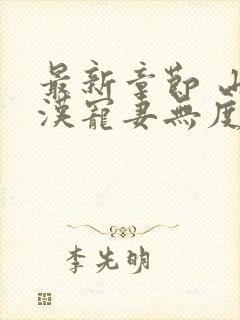 最新章節 山
漢寵妻無度
李先明